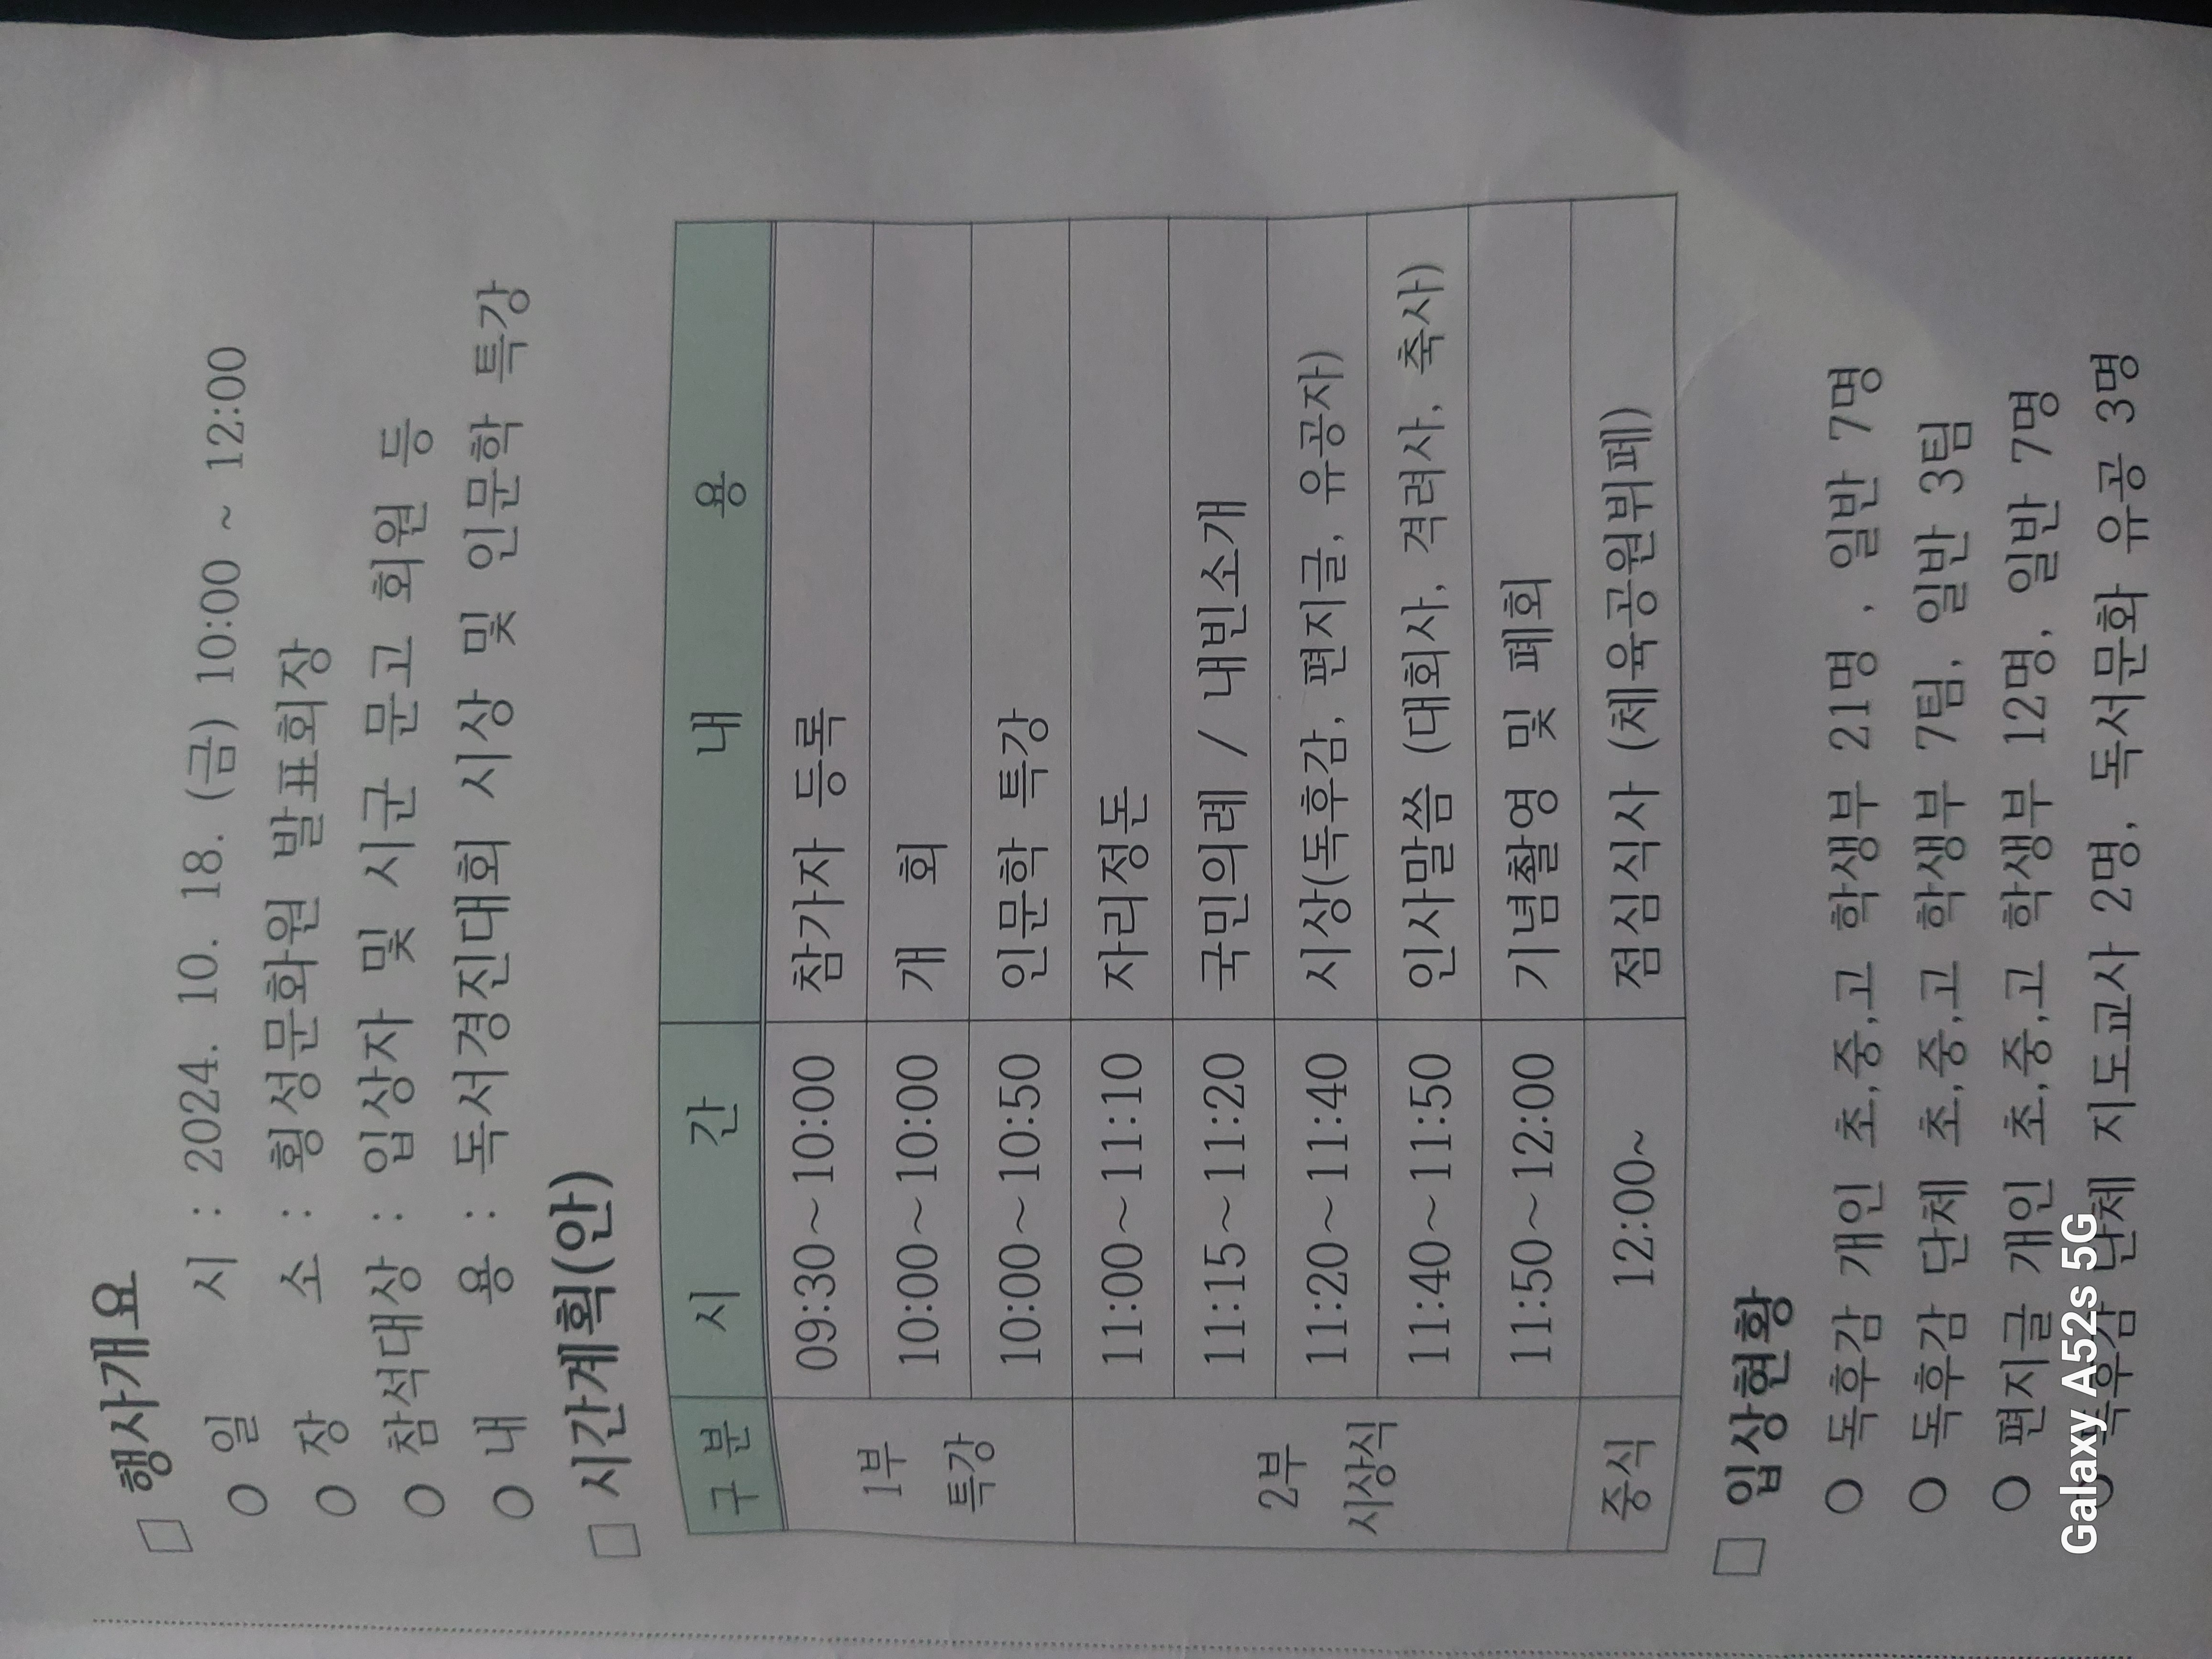 □ 행사개요
○ 일 시 : 2024. 10. 18. (금) 10:00 ~ 12:00
○ 장 소 : 횡성문화원 발표회장
○ 참석대상 : 입상자 및 시군 문고 회원 등
○ 내 용 : 독서경진대회 시상 및 인문학 특강
□ 시간계획(안)
구 분 시 간 내 용
1부 특강 09:30~10:00 참가자 등록
10:00~10:00 개 회
10:00~10:50 인문학 특강
2부 시상식 11:00~11:10 자리정돈
11:15~11:20 국민의례 / 내빈소개
11:20~11:40 시상(독후감, 편지글, 유공자)
11:40~11:50 인사말씀 (대회사, 격려사, 축사)
11:50~12:00 기념촬영 및 폐회
중식 12:00~ 점심식사 (체육공원뷔페)
□ 입상현황
○ 독후감 개인 초,중,고 학생부 21명 , 일반 7명
○ 독후감 단체 초,중,고 학생부 7팀, 일반 3팀
○ 편지글 개인 초,중,고 학생부 12명, 일반 7명
○ 독후감 단체 지도교사 2명, 독서문화 유공 3명
Galaxy A52s 5G